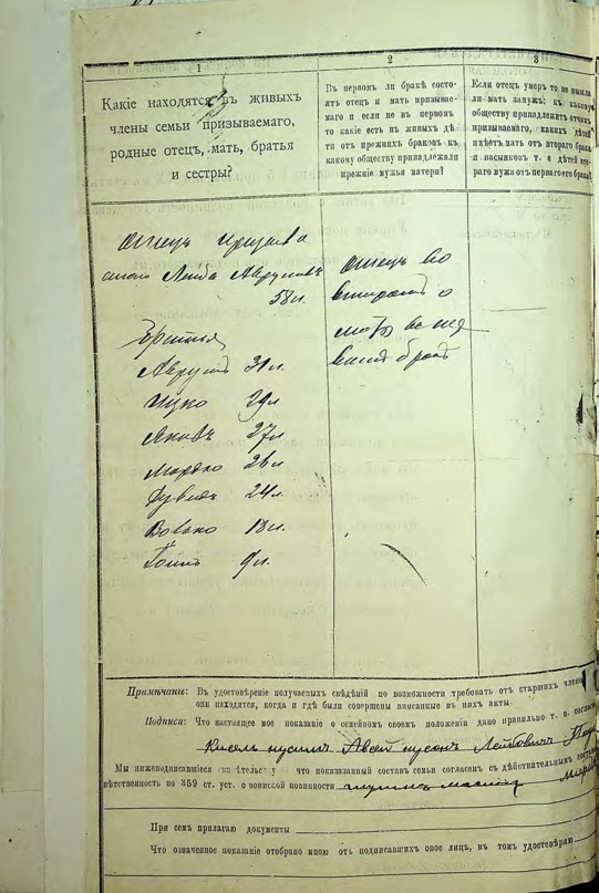 1
2
3
Какіе находятся въ живыхъ
члены семьи призываемаго,
родные отецъ, мать, братья
и сестры?
Въ первомъ ли бракѣ состо-
ятъ отецъ и мать призывае-
маго и если не въ первомъ
то какіе есть въ живыхъ дѣ
ти отъ прежнихъ браковъ къ
какому обществу принадлежали
прежніе мужья матери?
Если отецъ умеръ то не вышла
ли мать замужъ; къ какому
обществу принадлежитъ отчимъ
призываемаго, какихъ дѣтей
имѣетъ мать отъ втораго брака
и пасынковъ т. е. дѣтей
раго мужа отъ перваго его брака?
Отецъ призыва
емаго Лейба Аврумовъ
58 л.
братья
Аврумъ 31 л.
Ицко 29 л
Яковъ 27 л
Мордко 26 л
Дувидъ 24 л.
Волько 18 л.
9 л.
Отецъ во
второмъ а
мать въ пер
вомъ бракѣ
Примѣчаніе: Въ удостовѣреніе получаемыхъ свѣдѣній по возможности требовать отъ старшихъ члено
они находятся, когда и гдѣ были совершены вписанные въ нихъ акты.
Подписи: Что настоящее мое показаніе о семейномъ своемъ положеніи дано правильно т. е. соглас
Лейбовичъ
Мы нижеподписавшіеся что показанный составъ семьи согласенъ съ дѣйствительнымъ состав
вѣтственность по 359 ст. уст. о воинской повинности
При семъ прилагаю документы
Что означенное показаніе отобрано мною отъ подписавшихъ оное лицъ, въ томъ удостовѣряю